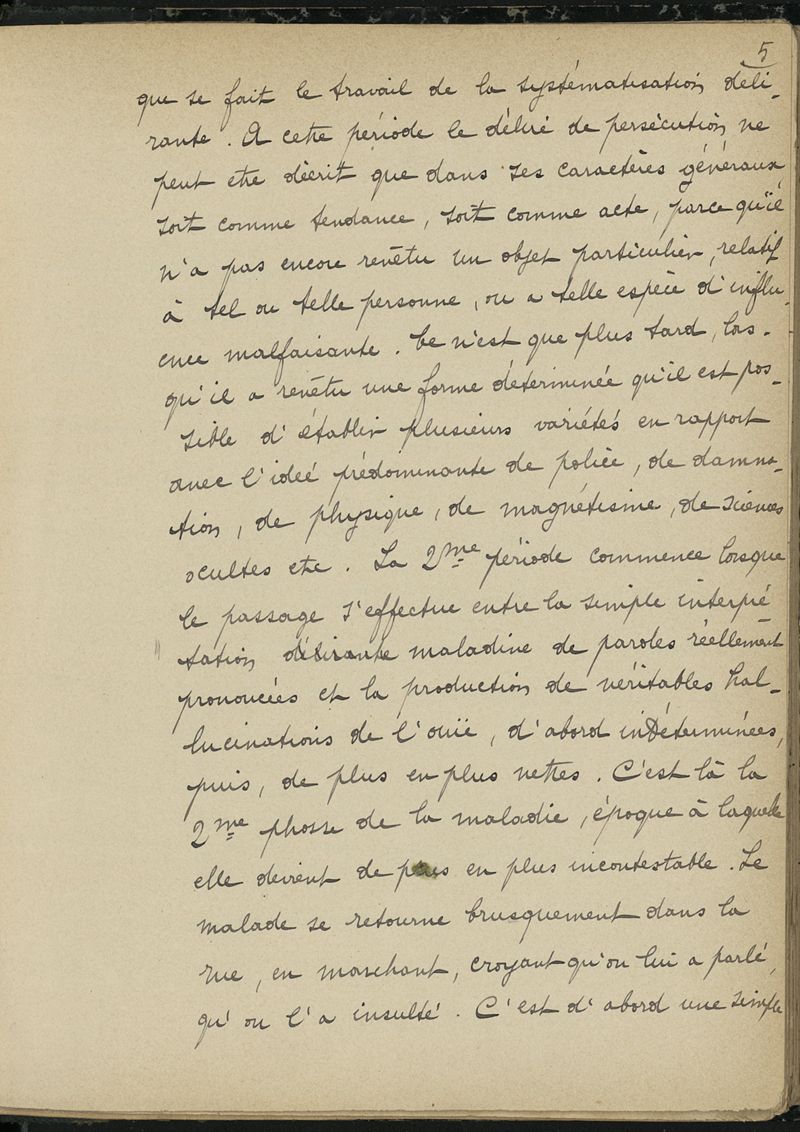 5
que se fait le travail de la systématisation déli-
rante. A cette période le délire de persécution ne
peut etre décrit que dans ses caractères généraux
soit comme tendance, soit comme acte, parce qu'il
n'a pas encore revêtu un objet particulier, relatif
à tel ou telle personne, ou a telle espèce d'influ-
ence malfaisante. Ce n'est que plus tard, lors-
qu'il a revêtu une forme déterminée qu'il est pos-
sible d'établir plusieurs variétés en rapport
avec l'idée prédominante de police, de damna-
tion, de physique, de magnétisme, de sciences
ocultes etc. La 2me période commence lorsque
le passage s'effectue entre la simple interpré-
tation délirante maladive de paroles réellement
prononcées et la production de véritables hal-
lucinations de l'ouïe, d'abord indéterminées,
puis, de plus en plus nettes. C'est là la
2me phase de la maladie, époque à laquelle
elle devient de plus en plus incontestable. Le
malade se retourne brusquement dans la
rue, en marchant, croyant qu'on lui a parlé,
qu'on l'a insulté. C'est d'abord une simple